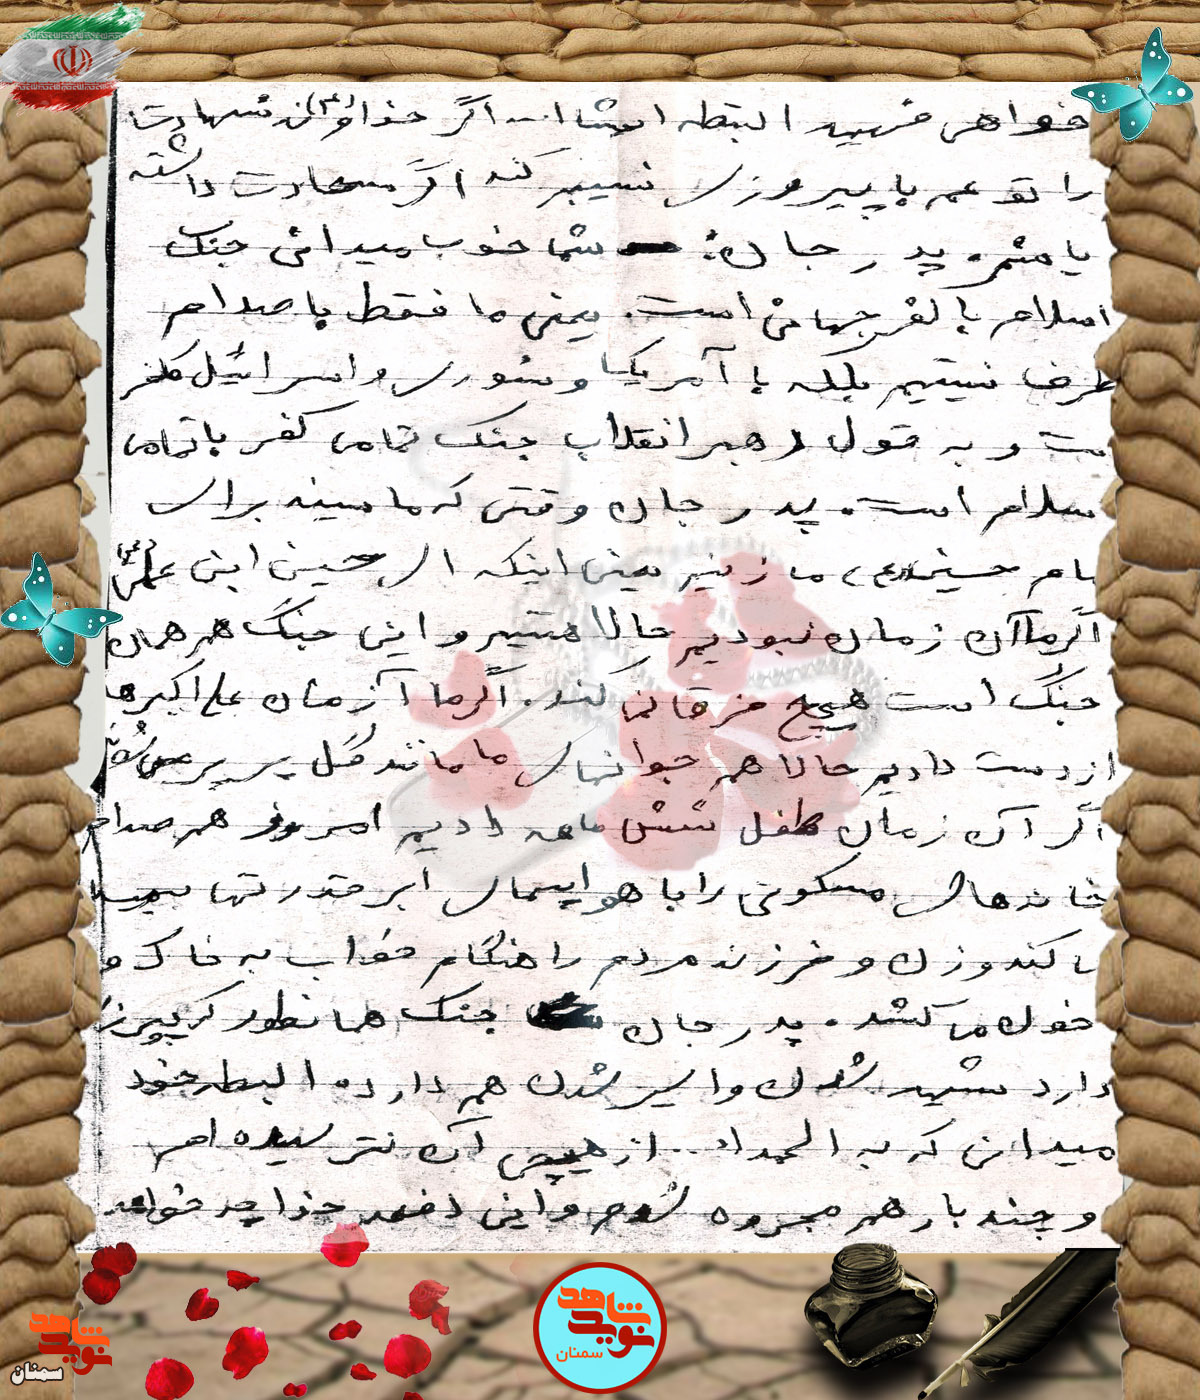 خواهی فهمید البطه انشااله اگر خدا
را تو عمر با پیروزی نسیبم کند اگر سعادت داشته
باشم. پدر جان: شما خوب میدانی جنگ
اسلام با کفر جهانی است. یعنی ما فقط با صدام
طرف نیستیم بلکه با آمریکا و شوروی و اسرائیل
ست و به قول رهبر انقلاب جنگ تمامی کفر با تمامی
سلام است. پدر جان وقتی که ما سینه برای
مام حسین(ع) ما زنیم یعنی اینکه ال حسین ابنی علی(ع)
اگر ما آن زمان نبودیم حالا هستیم و این جنگ هم همان
جنگ است هیچ فرقی نمی کند. اگر ما آن زمان علی اکبرها
از دست دادیم حالا هم جوانهای ما مانند گل پرپر می شوند
اگر آن زمان طفل شش ماهه دادیم امروز هم صدام
خانه های مسکونی را با هواپیمای ابر قدرتها بمب
می کند و زن و فرزند مردم را هنگام خواب به خاک و
خون می کشد. پدر جان جنگ همانطور که پیروزی
دارد شهید شدن و اسیر شدن هم دارد البطه خود
میدانی که به الحمداله.. از هیچی آن نترسیده ام
و چند بار هم مجروه شدم و این دفعه خدا چه خواهد
نوید شاهد
سمنان
نوید شاهد
سمنان